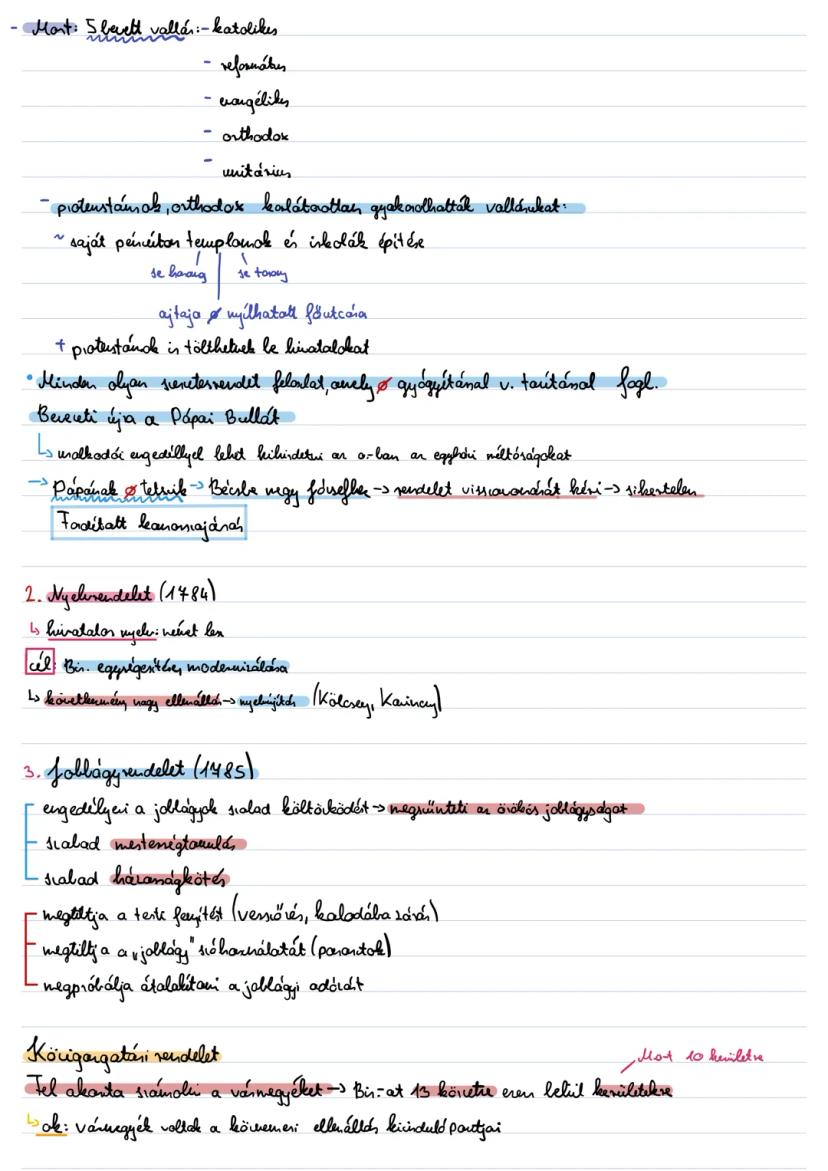 - Most: 5 bevett vallás: - katolikus
- református
- evangélikus
- orthodox
- unitárius
- protestánsok, orthodox korlátozottan gyakorolhatták vallásukat:
~ saját pénzükön templomok és iskolák építése
se harang se torony
ajtaja ø nyílhatott főutcára
+ protestánsok is tölthetnek be hivatalokat
• Minden olyan szerzetesrendet feloszlat, amely ø gyógyítással v. tanítással fogl.
Bevezeti újra a Pápai Bullát
↳ uralkodói engedéllyel lehet kihirdetni az o.-ban az egyházi méltóságokat
→ Pápának ø tetszik → Bécsbe megy Józsefhez → rendelet visszavonását kéri → sikertelen
Fordított kanosszajárás
2. Nyelvrendelet (1784)
↳ hivatalos nyelv: német lesz
cél: Bir. egységesítése, modernizálása
↳ következmény nagy ellenállás → nyelvújítás (Kölcsey, Kazinczy)
3. Jobbágyrendelet (1785)
engedélyezi a jobbágyok szabad költözködését → megszünteti az örökös jobbágyságot
szabad mesterségtanulás
szabad házasságkötés
megtiltja a testi fenyítést (vesszőzés, kalodába zárás)
megtiltja a „jobbágy" szóhasználatát (parasztok)
megpróbálja átalakítani a jobbágyi adózást
Közigazgatási rendelet
Most 10 kerületre
Fel akarta számolni a vármegyéket → Bir.-at 13 körzetre ezen belül kerületekre
↳ ok: vármegyék voltak a köznemesi ellenállás kiinduló pontjai